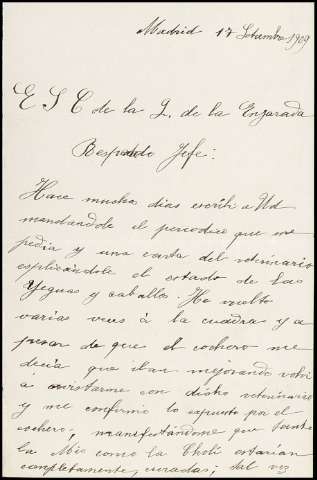 Madrid 17 Setembre 1909
E S C de la G. de la Enzarada
Respetado Jefe:
Hace muchos dias escribi a Ud
mandandole el periodico que me
pedia y una carta del veterinario
esplicandole el estado de las
Yeguas y caballos. He vuelto
varias veces á la cuadra y a
pesar de que el cochero me
decia que iban mejorando volvi
á avistarme con disho veterinario
y me confirmo lo expuesto por el
cochero; manifestándome que tanto
la Miss como la Choli estarian
completamente, curadas; del vez